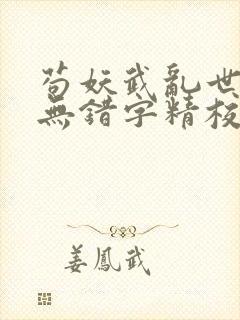 苟妖武亂世
無錯字精校
姜鳳武